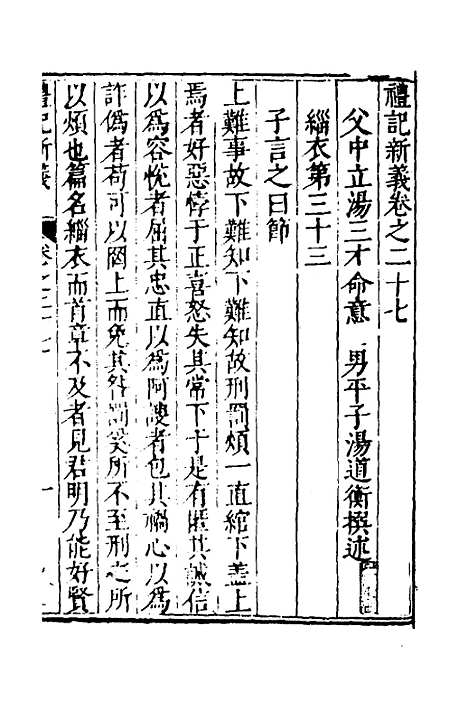 禮記新義卷之二十七
父中立湯三才命意 男平子湯道衡撰述
緇衣第三十三
子言之曰節
上難事故下難知下難知故刑罰煩一直綰下盖上
焉者好惡悖于正喜怒失其常下于是有匿其誠信
以爲容悅者屈其忠直以爲阿諛者包其禍心以爲
詐僞者苟可以罔上而免其咎罰奚所不至刑之所
以煩也篇名緇衣而首章不及者見君明乃能好賢
禮記新義 卷之二十七 一